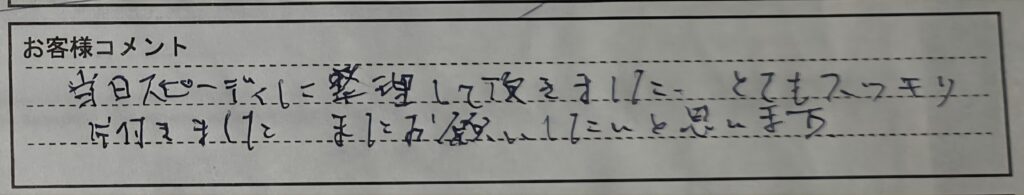 お客様コメント
当日スピーディに整理して頂きました。とてもスッキリ
片付きました。またお願いしたいと思います